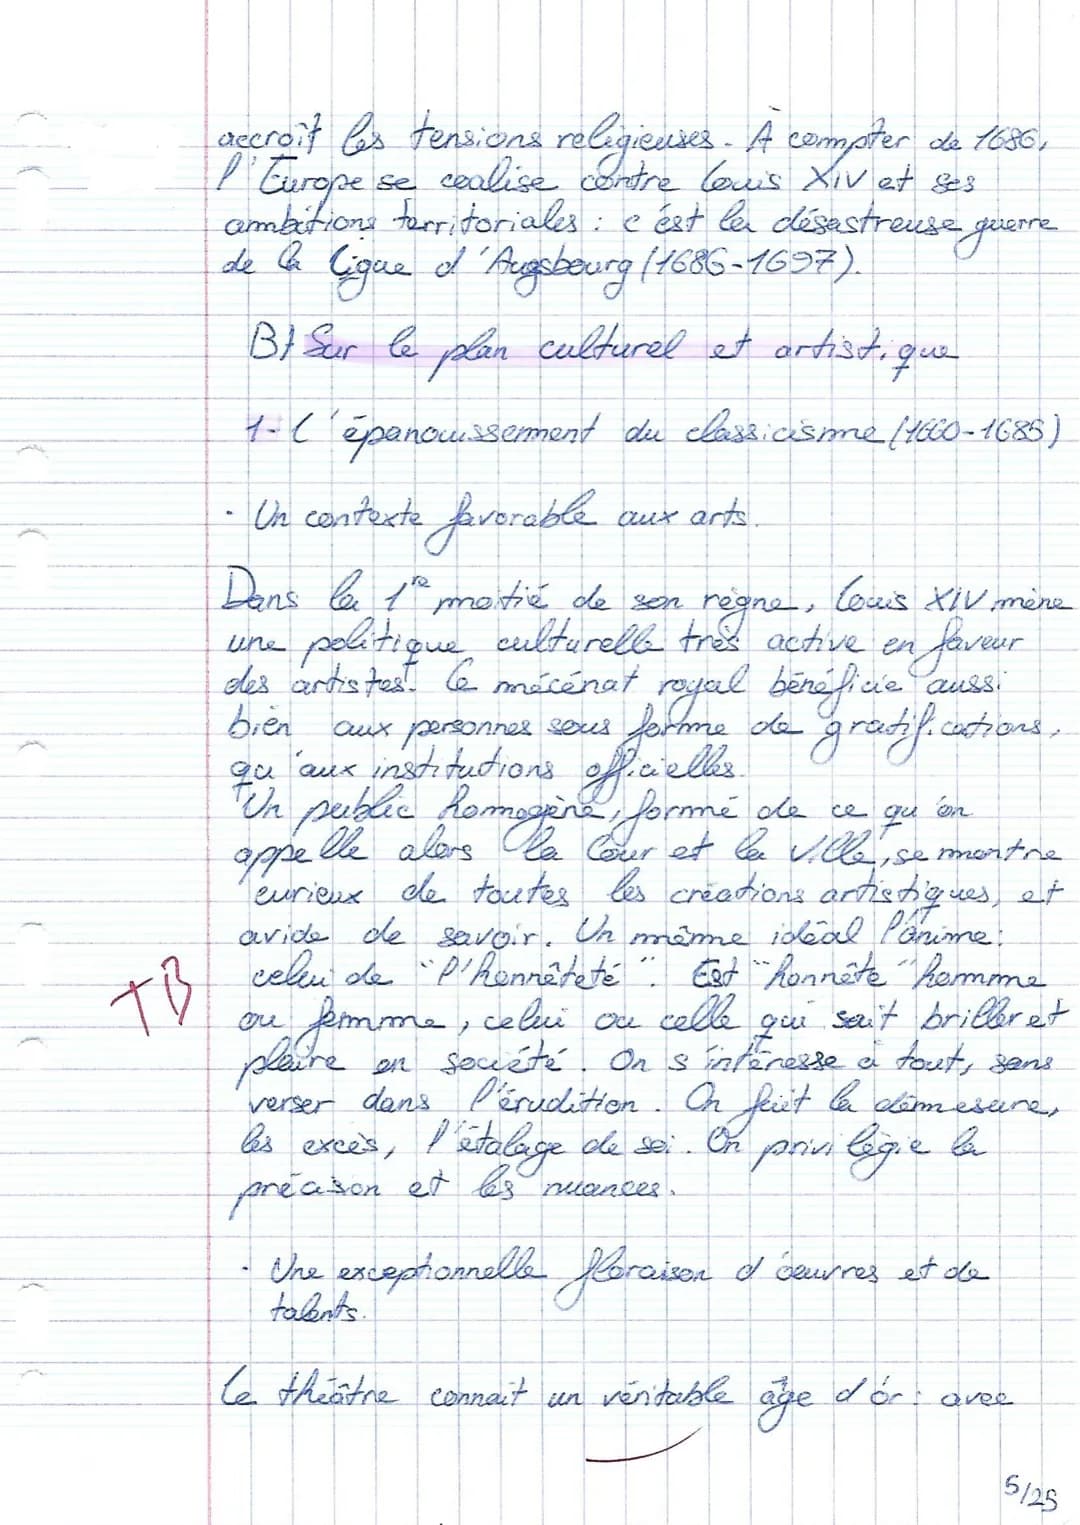 accroît les tensions religieuses. À compter de 1686,
l'Europe se coalise contre Louis XIV et ses
ambitions territoriales : c'est la désastreuse guerre
de la Ligue d'Augsbourg (1686-1697).
B) Sur le plan culturel et artistique
1- L'épanouissement du classicisme (1660-1685)
· Un contexte favorable aux arts.
Dans la 1re moitié de son règne, Louis XIV mène
une politique culturelle très active en faveur
des artistes. Le mécénat royal bénéficie aussi
bien aux personnes sous forme de gratifications,
qu'aux institutions officielles.
Un public homogène, formé de ce qu'on
appelle alors la Cour et la Ville, se montre
curieux de toutes les créations artistiques, et
avide de savoir. Un même idéal l'anime :
celui de "l'honnêteté". Est "honnête" homme
TB
ou femme, celui ou celle qui sait briller et
plaire en société. On s'intéresse à tout, sans
verser dans l'érudition. On fuit la démesure,
les excès, l'étalage de soi. On privilégie la
précison et les nuances.
· Une exceptionnelle floraison d'oeuvres et de
talents.
Le théâtre connait un véritable âge d'or : avec
5/25